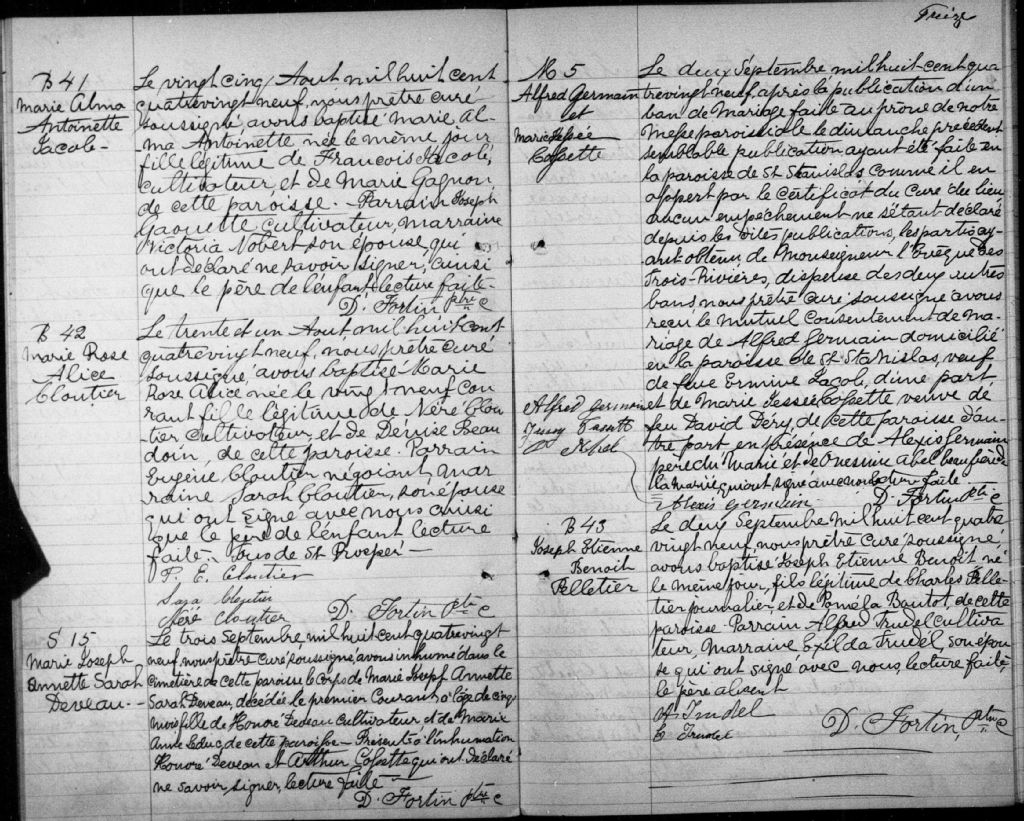 B 41
Marie Alma
Antoinette
Jacob -
Le vingt cinq Aout mil huit cent
quatrevingt neuf, nous prêtre curé
soussigné, avons baptisé Marie Al-
ma Antoinette née le même jour
fille légitime de Francois Jacob,
cultivateur, et de Marie Gagnon,
de cette paroisse. - Parrain Joseph
cultivateur, marraine
Victoria Nobert son épouse, qui
ont déclaré ne savoir signer, ainsi
que le père de l'enfant lecture faite -
D. Fortin Ptre C
B 42
Marie Rose
Alice
Cloutier
Le trente et un Aout, mil huit cent
quatrevingt neuf, nous prêtre curé
soussigné, avons baptisé Marie
Rose Alice née le vingt neuf cou
rant fille légitime de Néré Clou
tier cultivateur, et de Denise Beau
doin, de cette paroisse. Parrain
Eugène Cloutier négociant, mar
raine Sarah Cloutier, son épouse
qui ont signé avec nous ainsi
que le père de l'enfant lecture
faite - Tous de St Prosper -
P. E. Cloutier
Sara Cloutier
Néré Cloutier D. Fortin Ptre C
S 15
Marie Joseph
Annette Sarah
Deveau -
Le trois Septembre, mil huit cent quatrevingt
neuf, nous prêtre curé soussigné avons inhumé dans le
cimetière de cette paroisse le corps de Marie Joseph Annette
Sarah Deveau, décédée le premier courant, à l'âge de cinq
mois fille de Honoré Deveau cultivateur et de Marie
Anne Leduc, de cette paroisse - Présents à l'inhumation
Honoré Deveau et Arthur Cossette qui ont déclaré
ne savoir signer, lecture faite -
D. Fortin Ptre C
Treize
M 5
Alfred Germain
et
Marie Jessée
Cossette
Le deux Septembre mil huit cent qua
trevingt neuf, après la publication d'un
ban de Mariage faite au prône de notre
Messe paroissiale le dimanche précédent
semblable publication ayant été faite en
la paroisse de St Stanislas comme il en
appert par le certificat du Curé des lieu
aucun empêchement ne s'étant déclaré
depuis les dites publications, les partis ay-
ant obtenu de Monseigneur l'Evêque des
Trois-Rivières, dispense des deux autres
bans, nous prêtre curé soussigné avons
reçu le mutuel consentement de ma-
riage de Alfred Germain domicilié
en la paroisse de St. Stanislas, veuf
de feue Ermine Jacob, d'une part,
et de Marie Jessée Cossette veuve de
feu David Déry, de cette paroisse d'au-
tre part, en présence de Alexis Germain
père du marié et de Onesime Abel beaufrère de
la mariée qui ont signé avec nous lecture faite.
Alfred Germain
Alexis Germain D. Fortin Ptre C
B 43
Joseph Etienne
Benoit
Pelletier
Le deux Septembre mil huit cent quatre
vingt neuf, nous prêtre curé soussigné,
avons baptisé Joseph Etienne Benoit né
le même jour, fils légitime de Charles Pelle-
tier journalier, et de Paméla Bautot, de cette
paroisse Parrain Alfred Trudel cultiva
teur, Marraine Exilda Trudel, son épou
se qui ont signé avec nous, lecture faite,
le père absent
A Trudel
E Trudel
D. Fortin, Ptre C